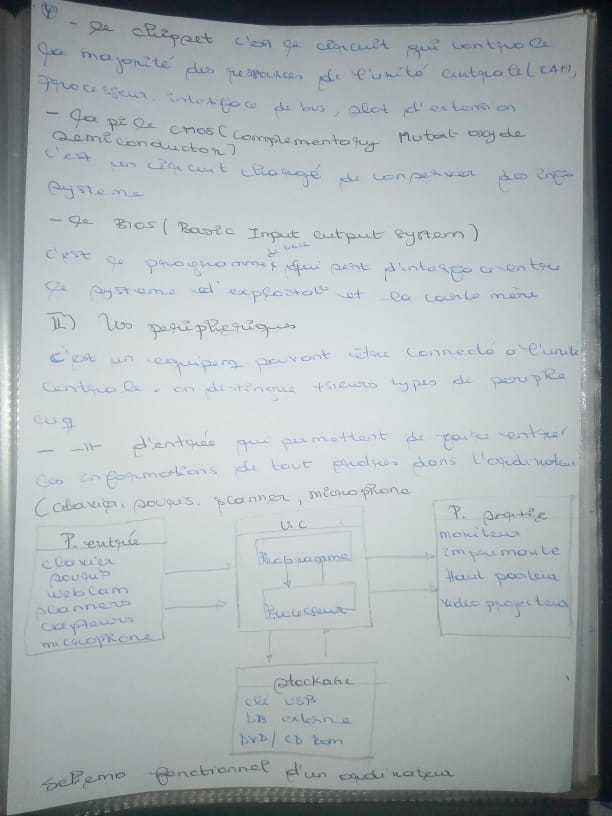 - le chipset c'est le circuit qui controle
la majorité des ressources de l'unité centrale (RAM,
processeur, interface de bus, slot d'extension
- la pile CMOS (Complementary Mutal oxyde
Semiconductor)
c'est un circuit chargé de conserver des info
systeme
- le BIOS (Basic Input output system)
de base
c'est le programme qui sert d'interface entre
le systeme d'exploitat° et la carte mère
II) les peripheriques
c'est un equipemt pouvant être connecté a l'unité
centrale. on distingue +sieurs types de periphe
d'entrée qui permettent de faire entrer
les informations de tout ordres dans l'ordinateur
(clavier, souris, scanner, microphone
P. entrée
clavier
souris
webcam
scanners
capteurs
microphone
UC
Programme
Processeur
P. sortie
moniteur
imprimante
Haut parleur
video projecteur
stockage
clé USB
externe
DVD/CD Rom
Schema fonctionnel d'un ordinateur